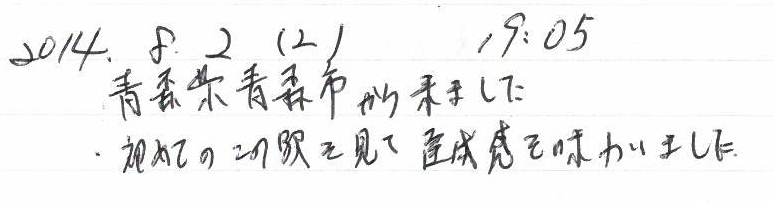 2014. 8. 2 (土) 19:05
青森県青森市から来ました
・初めてのこの駅を見て達成感を味わいました